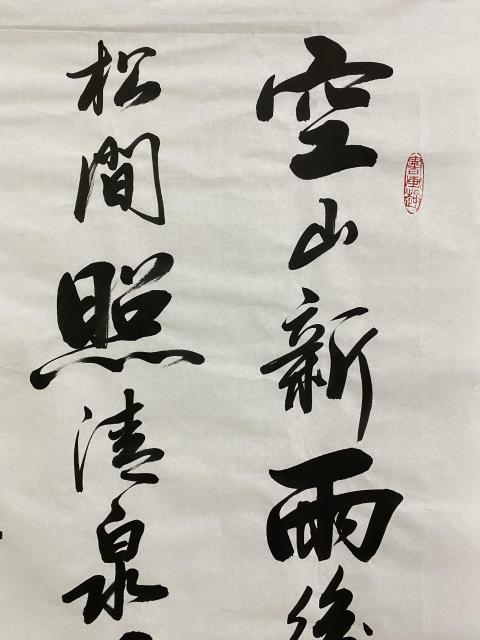 空山新雨後
松間照清泉